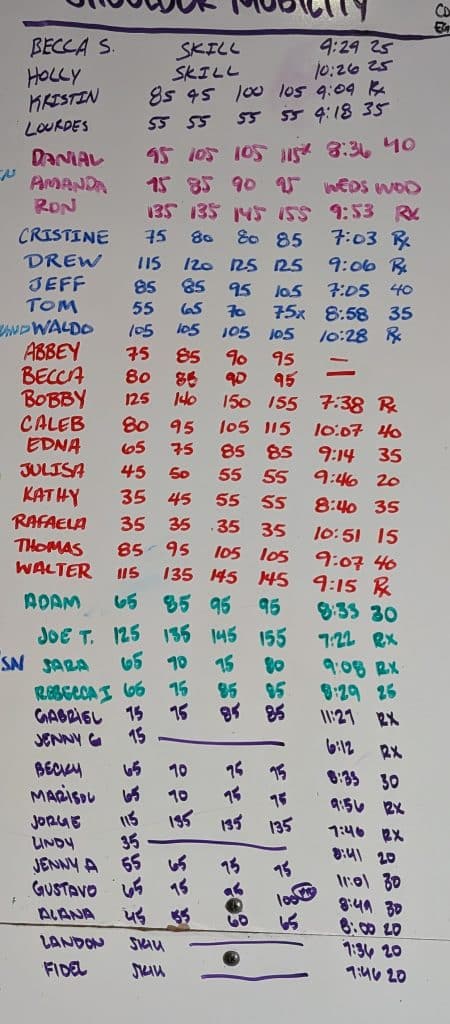 SHOULDER MOBILITY
BECCA S. SKILL 9:29 25
HOLLY SKILL 10:26 25
KRISTIN 85 95 100 105 9:09 Rx
LOURDES 55 55 55 55 9:18 35
DANIAL 95 105 105 115x 8:36 40
AMANDA 75 85 90 95 WEDS WOD
RON 135 135 145 155 9:53 RX
CRISTINE 75 80 80 85 7:03 Rx
DREW 115 120 125 125 9:06 Rx
JEFF 85 85 95 105 7:05 40
TOM 55 65 70 75x 8:58 35
WALDO 105 105 105 105 10:28 Rx
ABBEY 75 85 90 95 —
BECCA 80 85 90 95 —
BOBBY 125 140 150 155 7:38 Rx
CALEB 80 95 105 115 10:07 40
EDNA 65 75 85 85 9:14 35
JULISA 45 50 55 55 9:46 20
KATHY 35 45 55 55 8:40 35
RAFAELA 35 35 35 35 10:51 15
THOMAS 85 95 105 105 9:07 40
WALTER 115 135 145 145 9:15 Rx
ADAM 65 85 95 95 8:33 30
JOE T. 125 135 145 155 7:22 RX
SN SARA 65 70 75 80 9:08 RX
REBECCA I 65 75 85 85 8:29 25
GABRIEL 75 75 85 85 11:27 RX
JENNY G 75 6:12 RX
BECKY 65 70 75 75 8:33 30
MARISOL 65 70 75 75 9:56 RX
JORGE 115 135 135 135 7:46 RX
LINDY 35 8:41 20
JENNY A 55 65 75 75 11:01 30
GUSTAVO 65 75 95 100 8:49 30
ALANA 45 55 60 65 8:00 20
LANDON SKILL 7:36 20
FIDEL SKILL 7:46 20